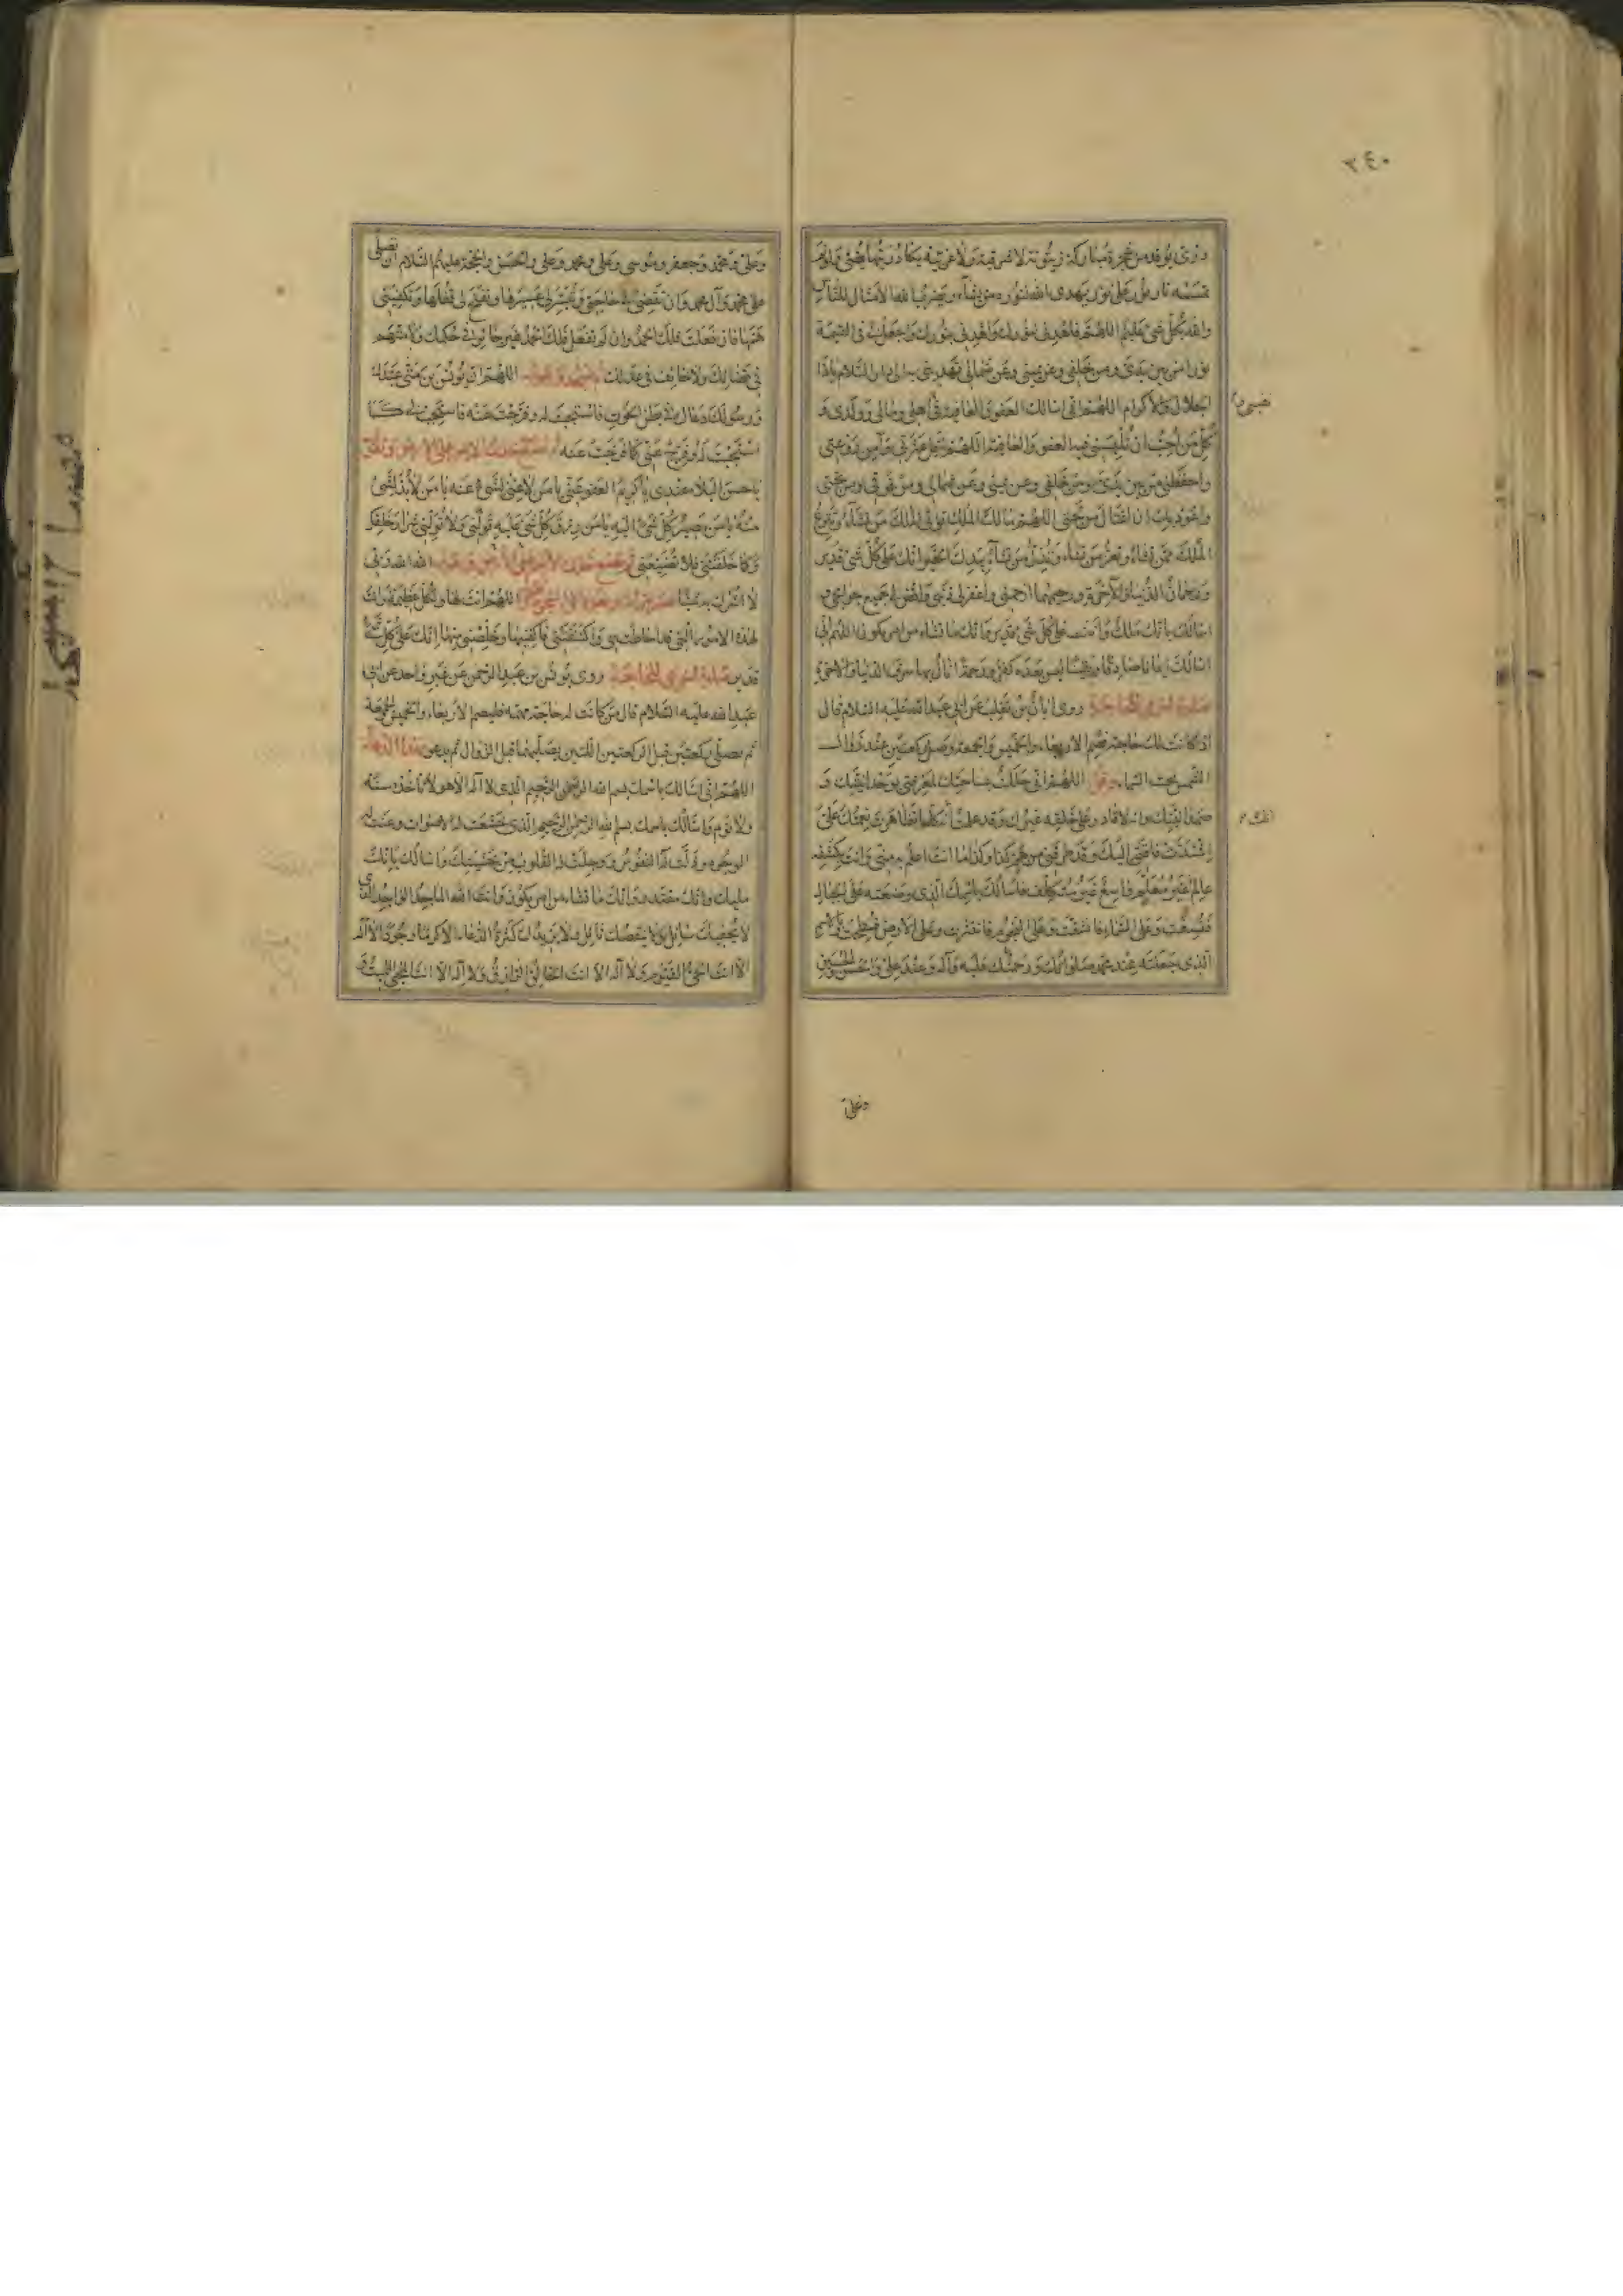 ٣٤٠
درّي يوقد من شجرة مباركة زيتونة لا شرقية ولا غربية يكاد زيتها يضئ ولو لم
تمسسه نار نور على نور يهدي الله لنوره من يشاء ويضرب الله الأمثال للناس
والله بكل شئ عليم اللهم فاهدني لنورك واهدني بنورك واجعل لي في القيمة
نورا من بين يدي ومن خلفي وعن يميني وعن شمالي تهديني به الى دار السلام يا ذا
الجلال والاكرام اللهم اني اسالك العفو والعافية في اهلي ومالي وولدي و
كل من احب ان تلبسني فيه العفو والعافية اللهم اقل عثرتي وآمن روعتي
واحفظني من بين يدي ومن خلفي وعن يميني وعن شمالي ومن فوقي ومن تحتي
واعوذ بك ان اغتال من تحتي اللهم مالك الملك توتي الملك من تشاء وتنزع
الملك ممن تشاء وتعز من تشاء وتذل من تشاء بيدك الخير انك على كل شئ قدير
رحمان الدنيا والآخرة ورحيمهما ارحمني واغفر لي ذنبي واقض لي جميع حوائجي و
اسالك بانك ملك وانك على كل شئ قدير وانك ما تشاء من امر يكون اللهم اني
اسالك ايمانا صادقا ويقينا ليس بعده كفر ورحمة انال بها شرف الدنيا والاخرة
صلوة اخرى للحاجة روى ابان بن تغلب عن ابي عبد الله عليه السلام قال
اذا كانت لك حاجة فصم الاربعاء والخميس والجمعة وصل ركعتين عند زوال
الشمس تحت السماء وقل اللهم اني حللت بساحتك لمعرفتي بوحدانيتك و
صمدانيتك وانه لا قادر على خلقه غيرك وقد علمت انه كلما تظاهرت نعمتك علي
اشتدت فاقتي اليك وقد طرقني من هم كذا وكذا ما انت اعلم به مني وانت بكشفه
عالم غير معلم واسع غير متكلف فاسالك باسمك الذي وضعته على الجبال
فنسفت وعلى السماء فانشقت وعلى النجوم فانتثرت وعلى الارض فسطحت وبالاسم
الذي جعلته عند محمد صلواتك ورحمتك عليه وآله وعند علي والحسن والحسين
وعلي
وعلي ومحمد وجعفر وموسى وعلي ومحمد وعلي والحسن والحجة عليهم السلام ان تصلي
على محمد وآل محمد وان تقضي لي حاجتي وتيسر لي عسيرها وتفتح لي قفلها وتكفيني
همها فان فعلت فلك الحمد وان لم تفعل فلك الحمد غير جائر في حكمك ولا متهم
في قضائك ولا حائف في عدلك اللهم ان يونس بن متى عبدك
ورسولك دعاك في بطن الحوت فاستجبت له وفرجت عنه فاستجب لي كما
استجبت له وفرج عني كما فرجت عنه
يا حسن البلاء عندي يا كريم العفو عني يا من لا غنى لشئ عنه يا من لا بد لشئ
منه يا من مصير كل شئ اليه يا من رزق كل شئ عليه تولني ولا تولني شرار خلقك
وكما خلقتني فلا تضيعني الله الله ربي
لا اشرك به شيئا اللهم انت لها ولكل عظيمة ولك
لهذه الامور التي قد احاطت بي واكتنفتني فاكفنيها وخلصني منها انك على كل شئ
قدير صلوة اخرى للحاجة روى يونس بن عبد الرحمن عن غير واحد عن ابي
عبد الله عليه السلام قال من كانت له حاجة مهمة فليصم الاربعاء والخميس والجمعة
ثم يصلي ركعتين قبل الركعتين اللتين يصليهما قبل الزوال ثم يدعو بهذا الدعاء
اللهم اني اسالك باسمك بسم الله الرحمن الرحيم الذي لا اله الا هو لا تاخذه سنة
ولا نوم واسالك باسمك بسم الله الرحمن الرحيم الذي خشعت له الاصوات وعنت له
الوجوه وذلت له النفوس ووجلت له القلوب من خشيتك واسالك بانك
مليك وانك مقتدر وانك ما تشاء من امر يكون وانك الله الماجد الواحد الذي
لا يحفيك سائل ولا ينقصك نائل ولا يزيدك كثرة الدعاء الا كرما وجودا لا اله
الا انت الحي القيوم ولا اله الا انت الخالق الرازق ولا اله الا انت المحيي المميت و